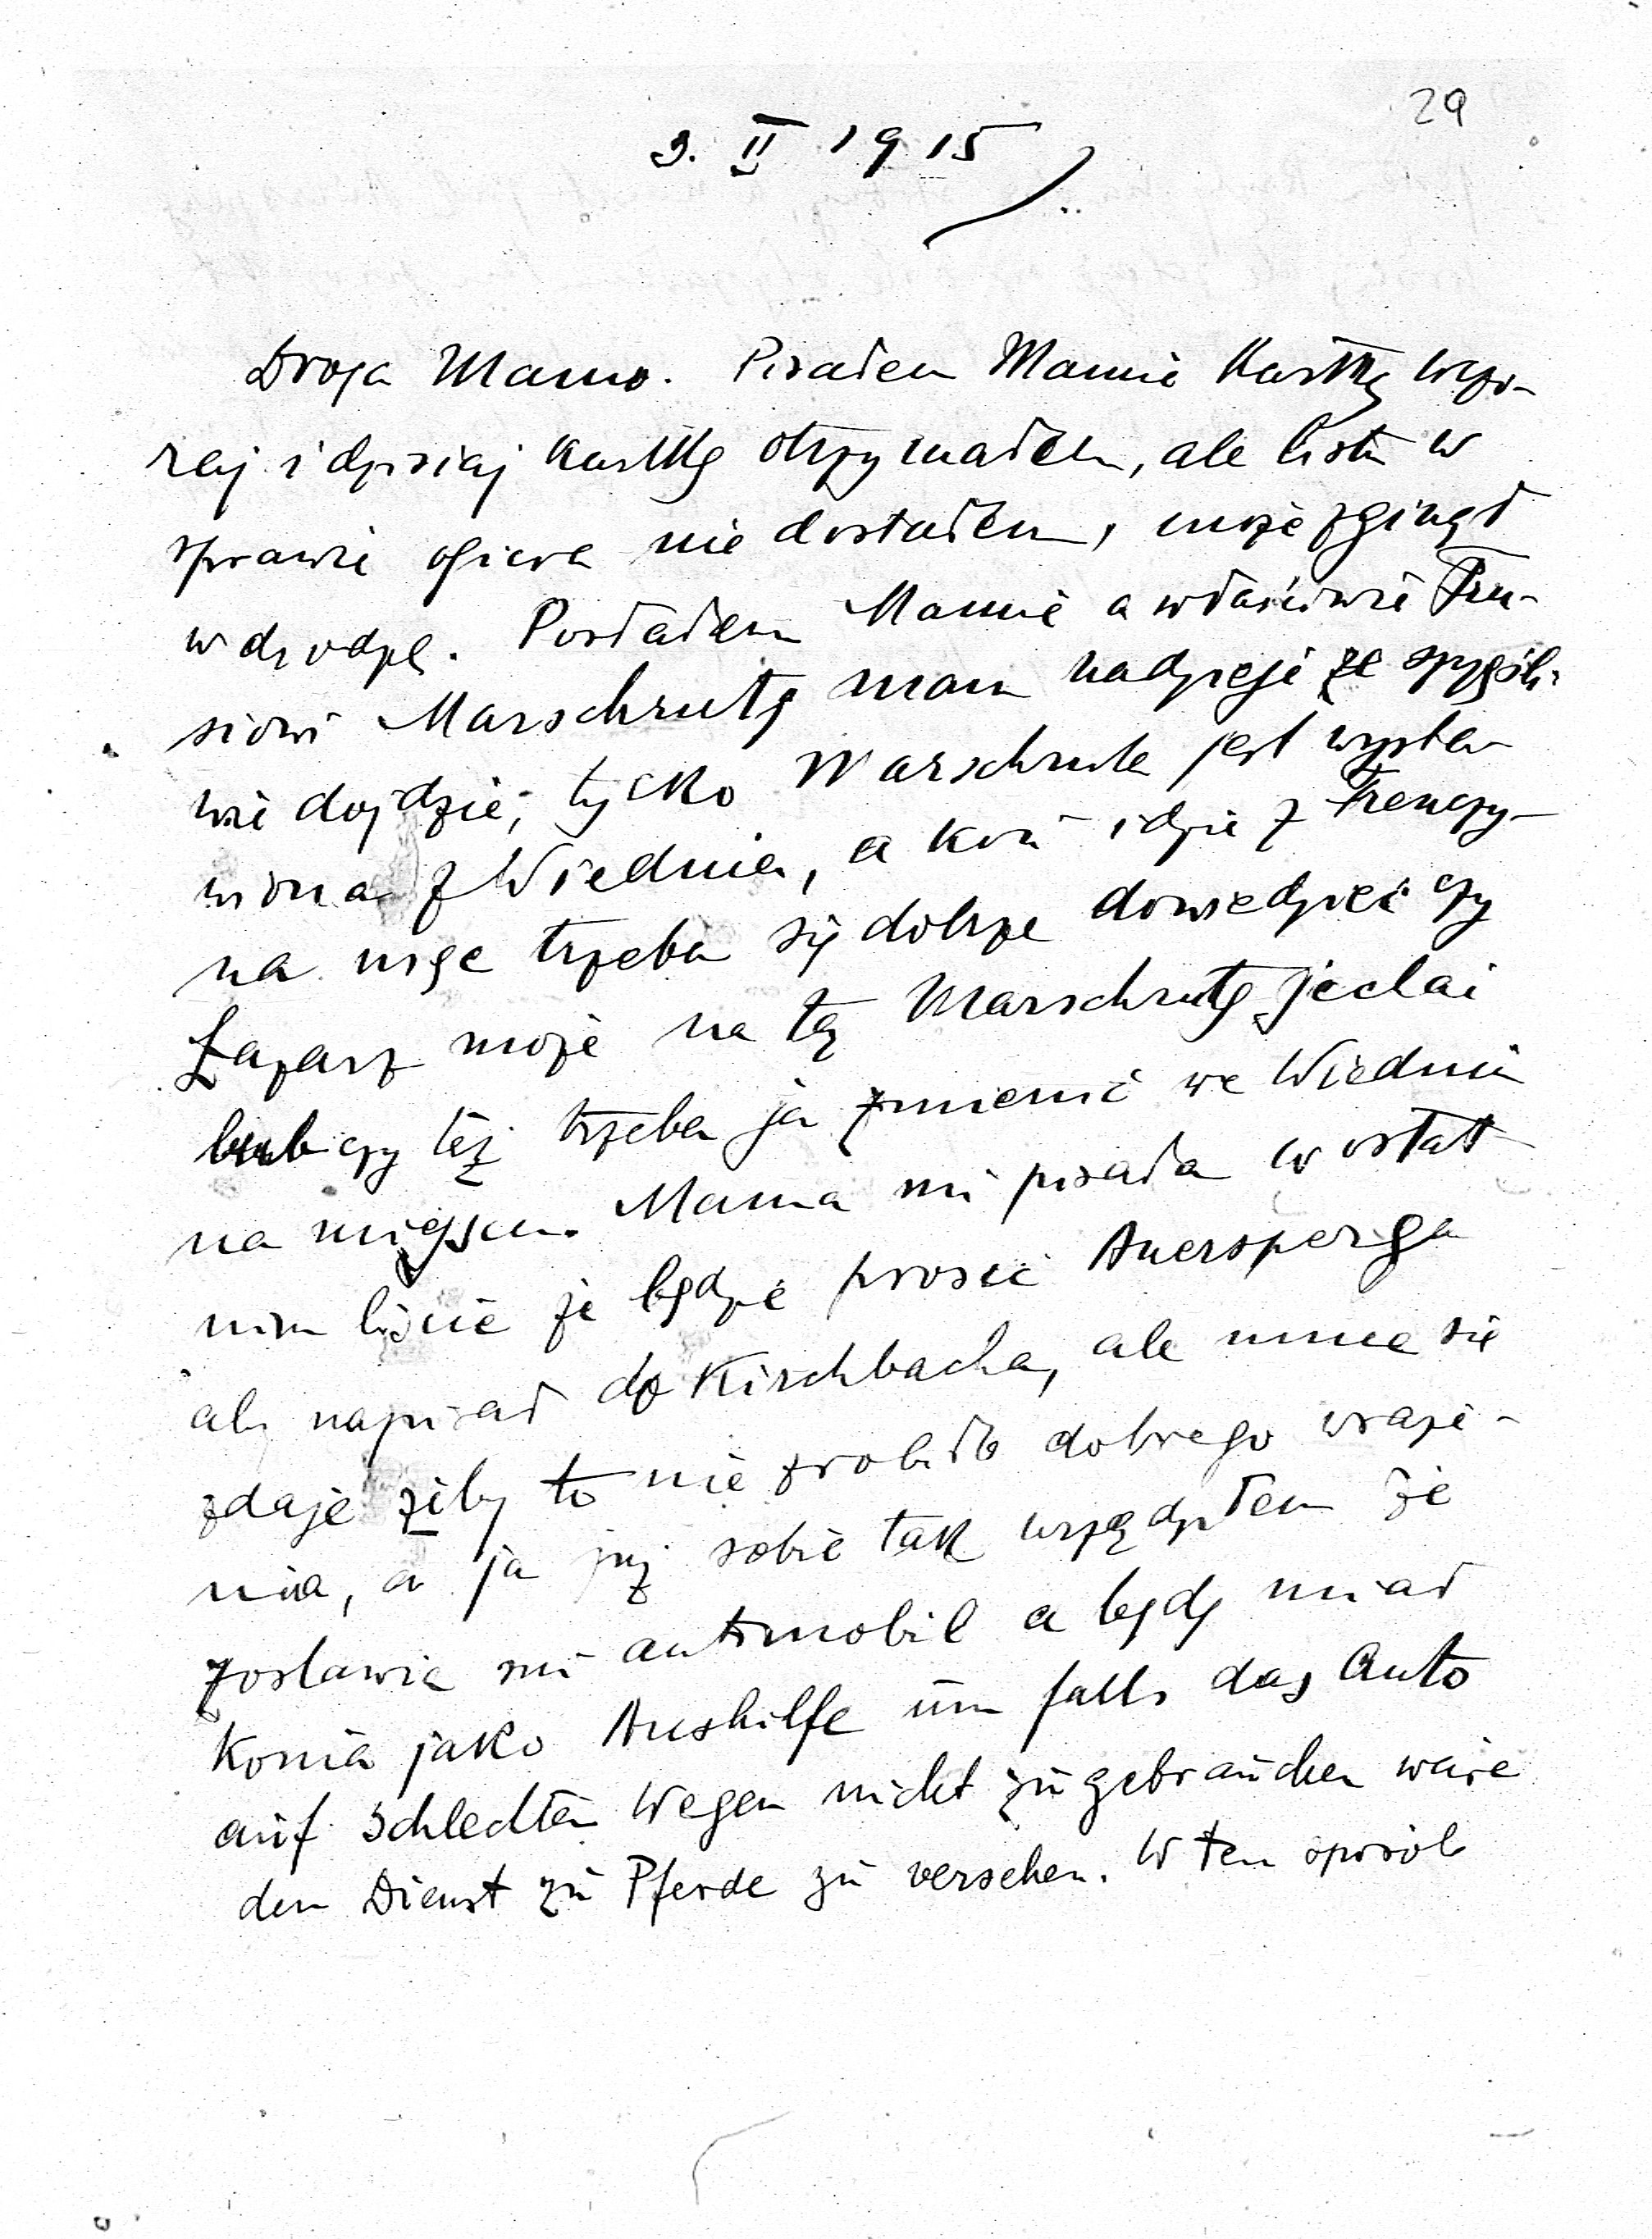 29
3. II 1915
Droga Mamo. Pisałem Mamie kartkę wczo-
raj i dzisiaj kartkę otrzymałem, ale listu w
sprawie ogiera nie dostałem, może zginął
w drodze. Posłałem Mamie a właściwie
siowi Marschrutę mam nadzieję że szczęśli-
wie dojdzie, tylko Marschruta jest wysta-
wiona z Wiednia, a koń idzie z Trenczy-
na więc trzeba się dobrze dowiedzieć czy
Łazarz może na tę Marschrutę jechać
czy też trzeba ją zmienić we Wiedniu
na miejscu. Mama mi pisała w ostat
nim liście że będzie prosić Auersperga
aby napisał do Kirchbacha, ale mnie się
zdaje żeby to nie zrobiło dobrego wraże-
nia, a ja już sobie tak urządziłem że
zostawią mi automobil a będę miał
konia jako Aushilfe um falls das Auto
auf schlechten Wegen nicht zu gebrauchen wäre
den Dienst zu Pferde zu versehen. W ten sposób